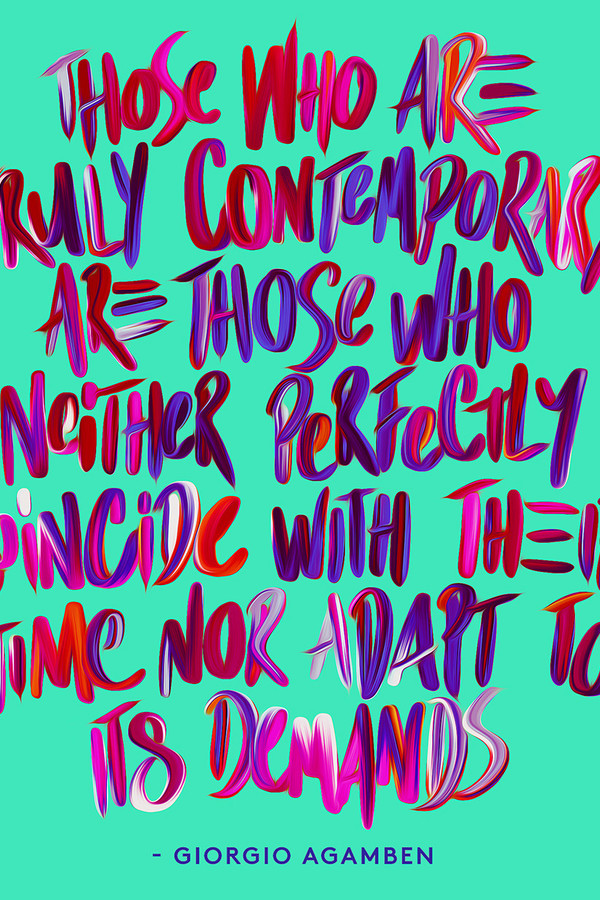 THOSE WHO ARE
RULY CONTEMPORAR
ARE THOSE WHO
NEITHER PERFECTLY
OINCIDE WITH THEI
TIME NOR ADAPT TO
ITS DEMANDS
- GIORGIO AGAMBEN